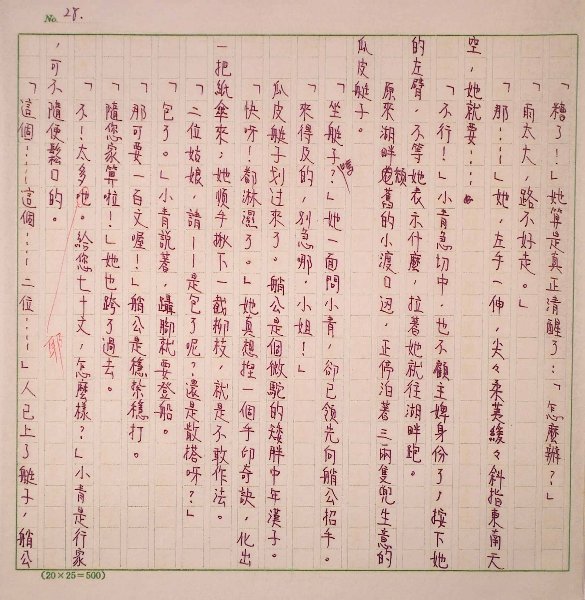 No. 28.
「糟了!」她算是真正清醒了:「怎麼辦?」
「雨太大,路不好走。」
「那……」她,左手一伸,尖々柔荑緩々斜指東南天
空,她就要……
「不行!」小青急切中,也不顧主婢身份了,按下她
的左臂,不等她表示什麼,拉著她就往湖畔跑。
原來湖畔頹舊的小渡口迎,正停泊著三兩隻兜生意的
瓜皮艇子。
「坐艇子?嗎」她一面問小青,卻已領先向艄公招手。
「來得及的,別急哪,小姐!」
瓜皮艇子划过來了。艄公是個微駝的矮胖中年漢子。
「快呀!都淋濕了。」她真想捏一個手印奇訣,化出
一把紙傘來;她順手揪下一截柳枝,就是不敢作法。
「二位姑娘,請——是包了呢?還是散搭呀?」
「包了。」小青說著,躡腳就要登船。
「那可要一百文喔!」艄公是穩紮穩打。
「隨您家算啦!」她也跨了過去。
「不!太多吔。給您七十文,怎麼樣?」小青是行家
,可不隨便鬆口的。
「這個……這個……二位……」人已上了艇子,艄公
耶
(20×25=500)